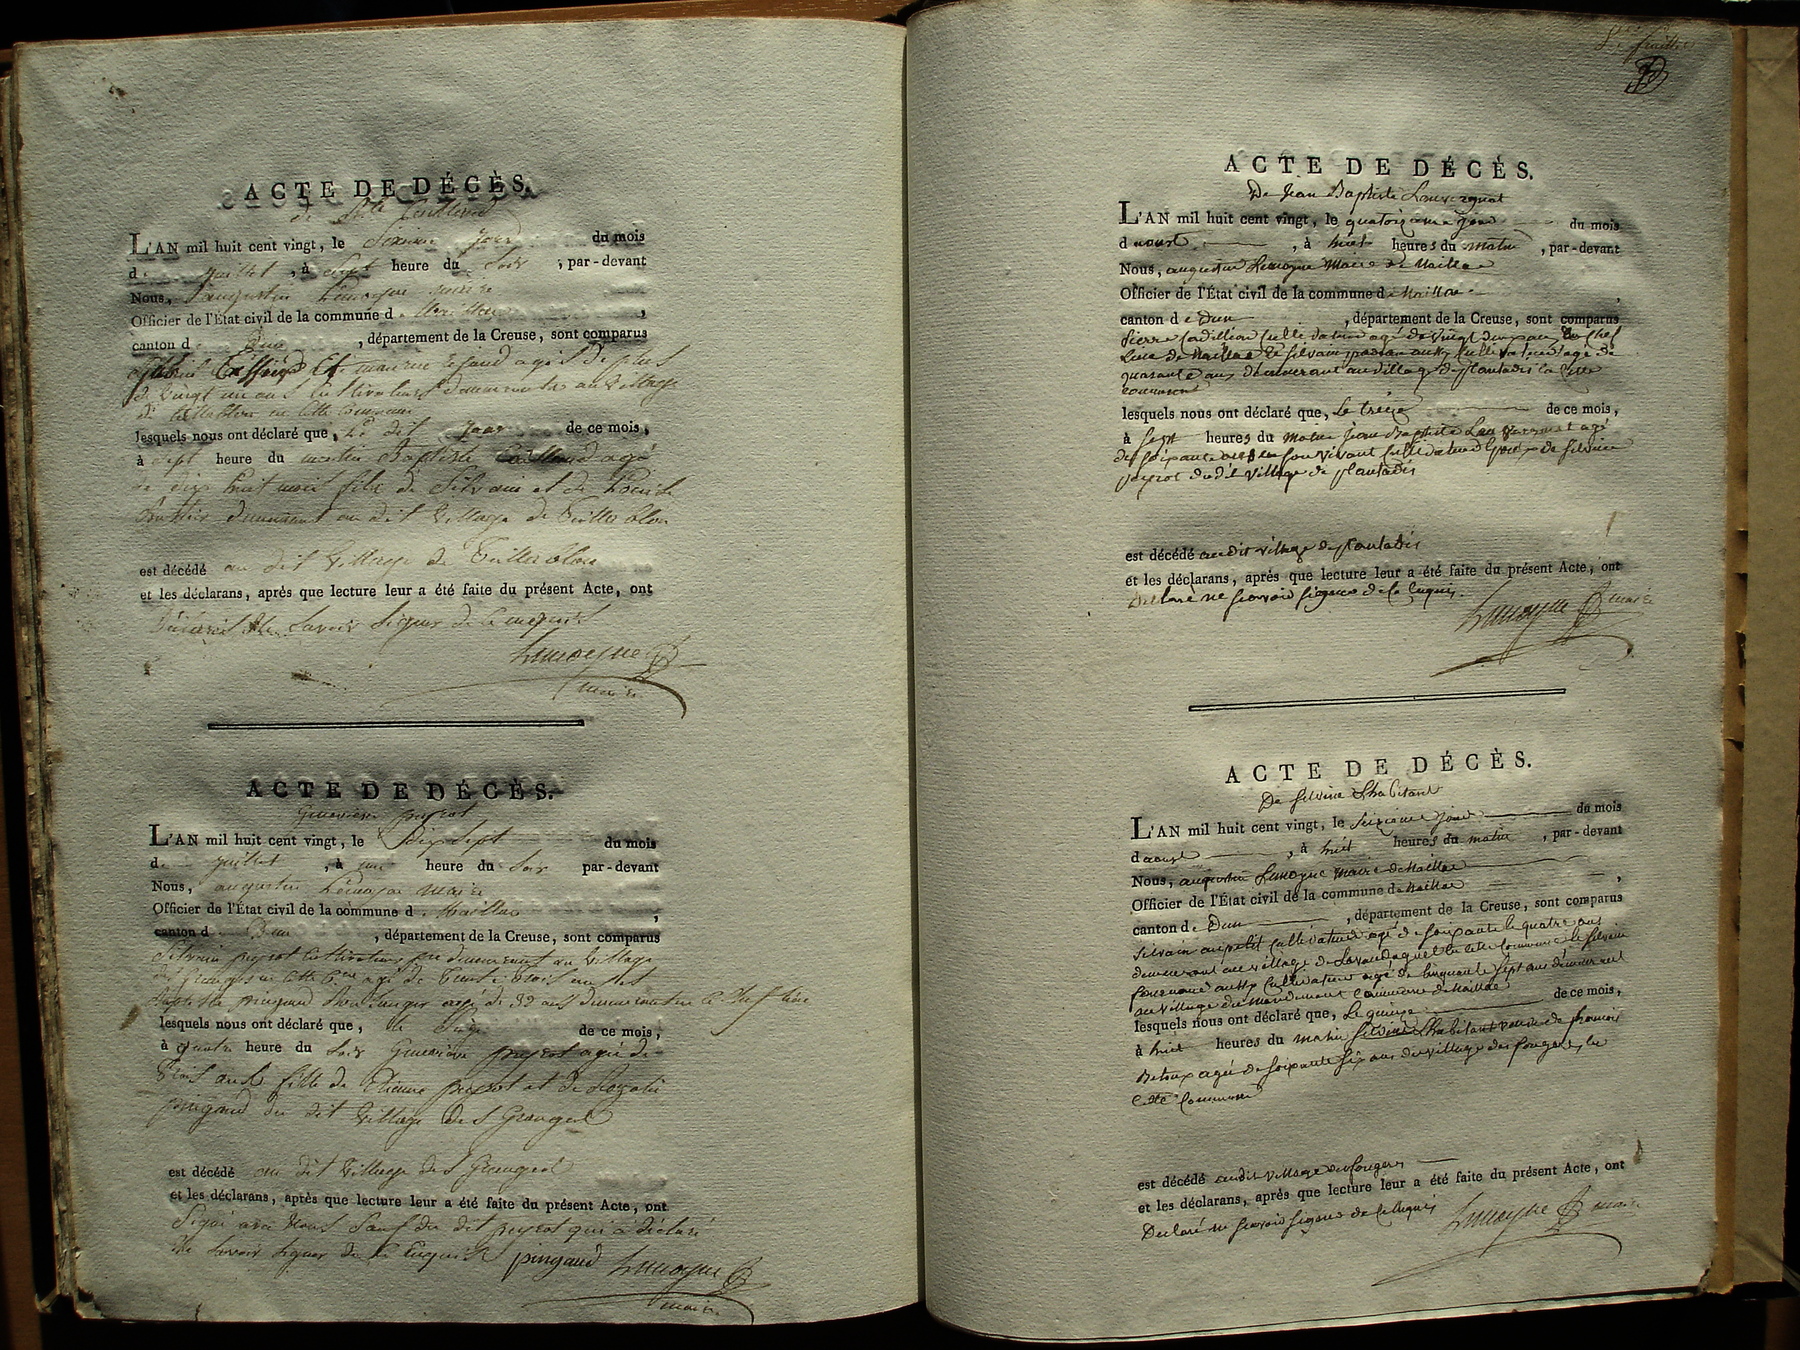 ACTE DE DÉCÈS.
L'AN mil huit cent vingt, le Seizieme jour du mois
de juillet, à Sept heure du Soir, par-devant
Nous, augustin Lemoyne maire
Officier de l'État civil de la commune d
canton d Dun, département de la Creuse, sont comparus
agés de plus
de vingt un ans Cultivateurs demeurants au Village
de en cette Commune
lesquels nous ont déclaré que, Le dit Jour de ce mois,
à Sept heure du matin Baptiste agé
de dix huit mois fils de Silvain et de Louise
demeurant au dit Village de
est décédé au dit Village de
et les déclarans, après que lecture leur a été faite du présent Acte, ont
Savoir Signer de Ce enquis
Lemoyne
maire
ACTE DE DÉCÈS.
Genevieve peyrot
L'AN mil huit cent vingt, le Dix Sept du mois
de juillet, à une heure du Soir par-devant
Nous, augustin Lemoyne maire
Officier de l'État civil de la commune de Maillac,
canton d Dun, département de la Creuse, sont comparus
Silvain peyrot Cultivateur demeurant au Village
des Granges en cette agé de trente trois ans et
pingaud agé de 32 ans
lesquels nous ont déclaré que, le Seize de ce mois,
à quatre heure du Soir Genevieve peyrot agée de
trois ans fille de Etienne peyrot et de
pingaud du dit Village de S Granges
est décédé au dit Village de S Granges
et les déclarans, après que lecture leur a été faite du présent Acte, ont
Signé avec Nous Sauf du dit peyrot qui a déclaré
ne Savoir Signer de Ce Enquis pingaud Lemoyne
maire
ACTE DE DÉCÈS.
De Jean Baptiste
L'AN mil huit cent vingt, le quatorzieme jour du mois
d aoust, à huit heures du matin, par-devant
Nous, augustin Lemoyne Maire de Maillac
Officier de l'État civil de la commune de Maillac,
canton de Dun, département de la Creuse, sont comparus
pierre Cultivateur agé de vingt ans du Chef
Lieu de Maillac et Silvain aussy Cultivateur agé de
quarante ans demeurant au village de plantadis
commune
lesquels nous ont déclaré que, Le treize de ce mois,
à Sept heures du matin Jean Baptiste agé
de Soixante ans en Son vivant Cultivateur Epoux de Silvine
peyrot du dit village de plantadis
est décédé au dit village de plantadis
et les déclarans, après que lecture leur a été faite du présent Acte, ont
Declaré ne Scavoir Signer de Ce Enquis.
Lemoyne maire
ACTE DE DÉCÈS.
De Silvine Lhabitant
L'AN mil huit cent vingt, le Seizieme jour du mois
d aoust, à huit heures du matin, par-devant
Nous, augustin Lemoyne Maire de Maillac
Officier de l'État civil de la commune de Maillac,
canton de Dun, département de la Creuse, sont comparus
Silvain aupetit Cultivateur agé de Soixante quatre ans
demeurant au village de en cette Commune et Silvain
aussy Cultivateur agé de Cinquante Sept ans demeurant
au village du commune de Maillac
lesquels nous ont déclaré que, Le quinze de ce mois,
à huit heures du matin Silvine Lhabitant veuve de françois
agée de Soixante Six ans du village des fougeres
cette Commune
est décédé au dit village des fougeres
et les déclarans, après que lecture leur a été faite du présent Acte, ont
Declaré ne Scavoir Signer de Ce Enquis Lemoyne maire